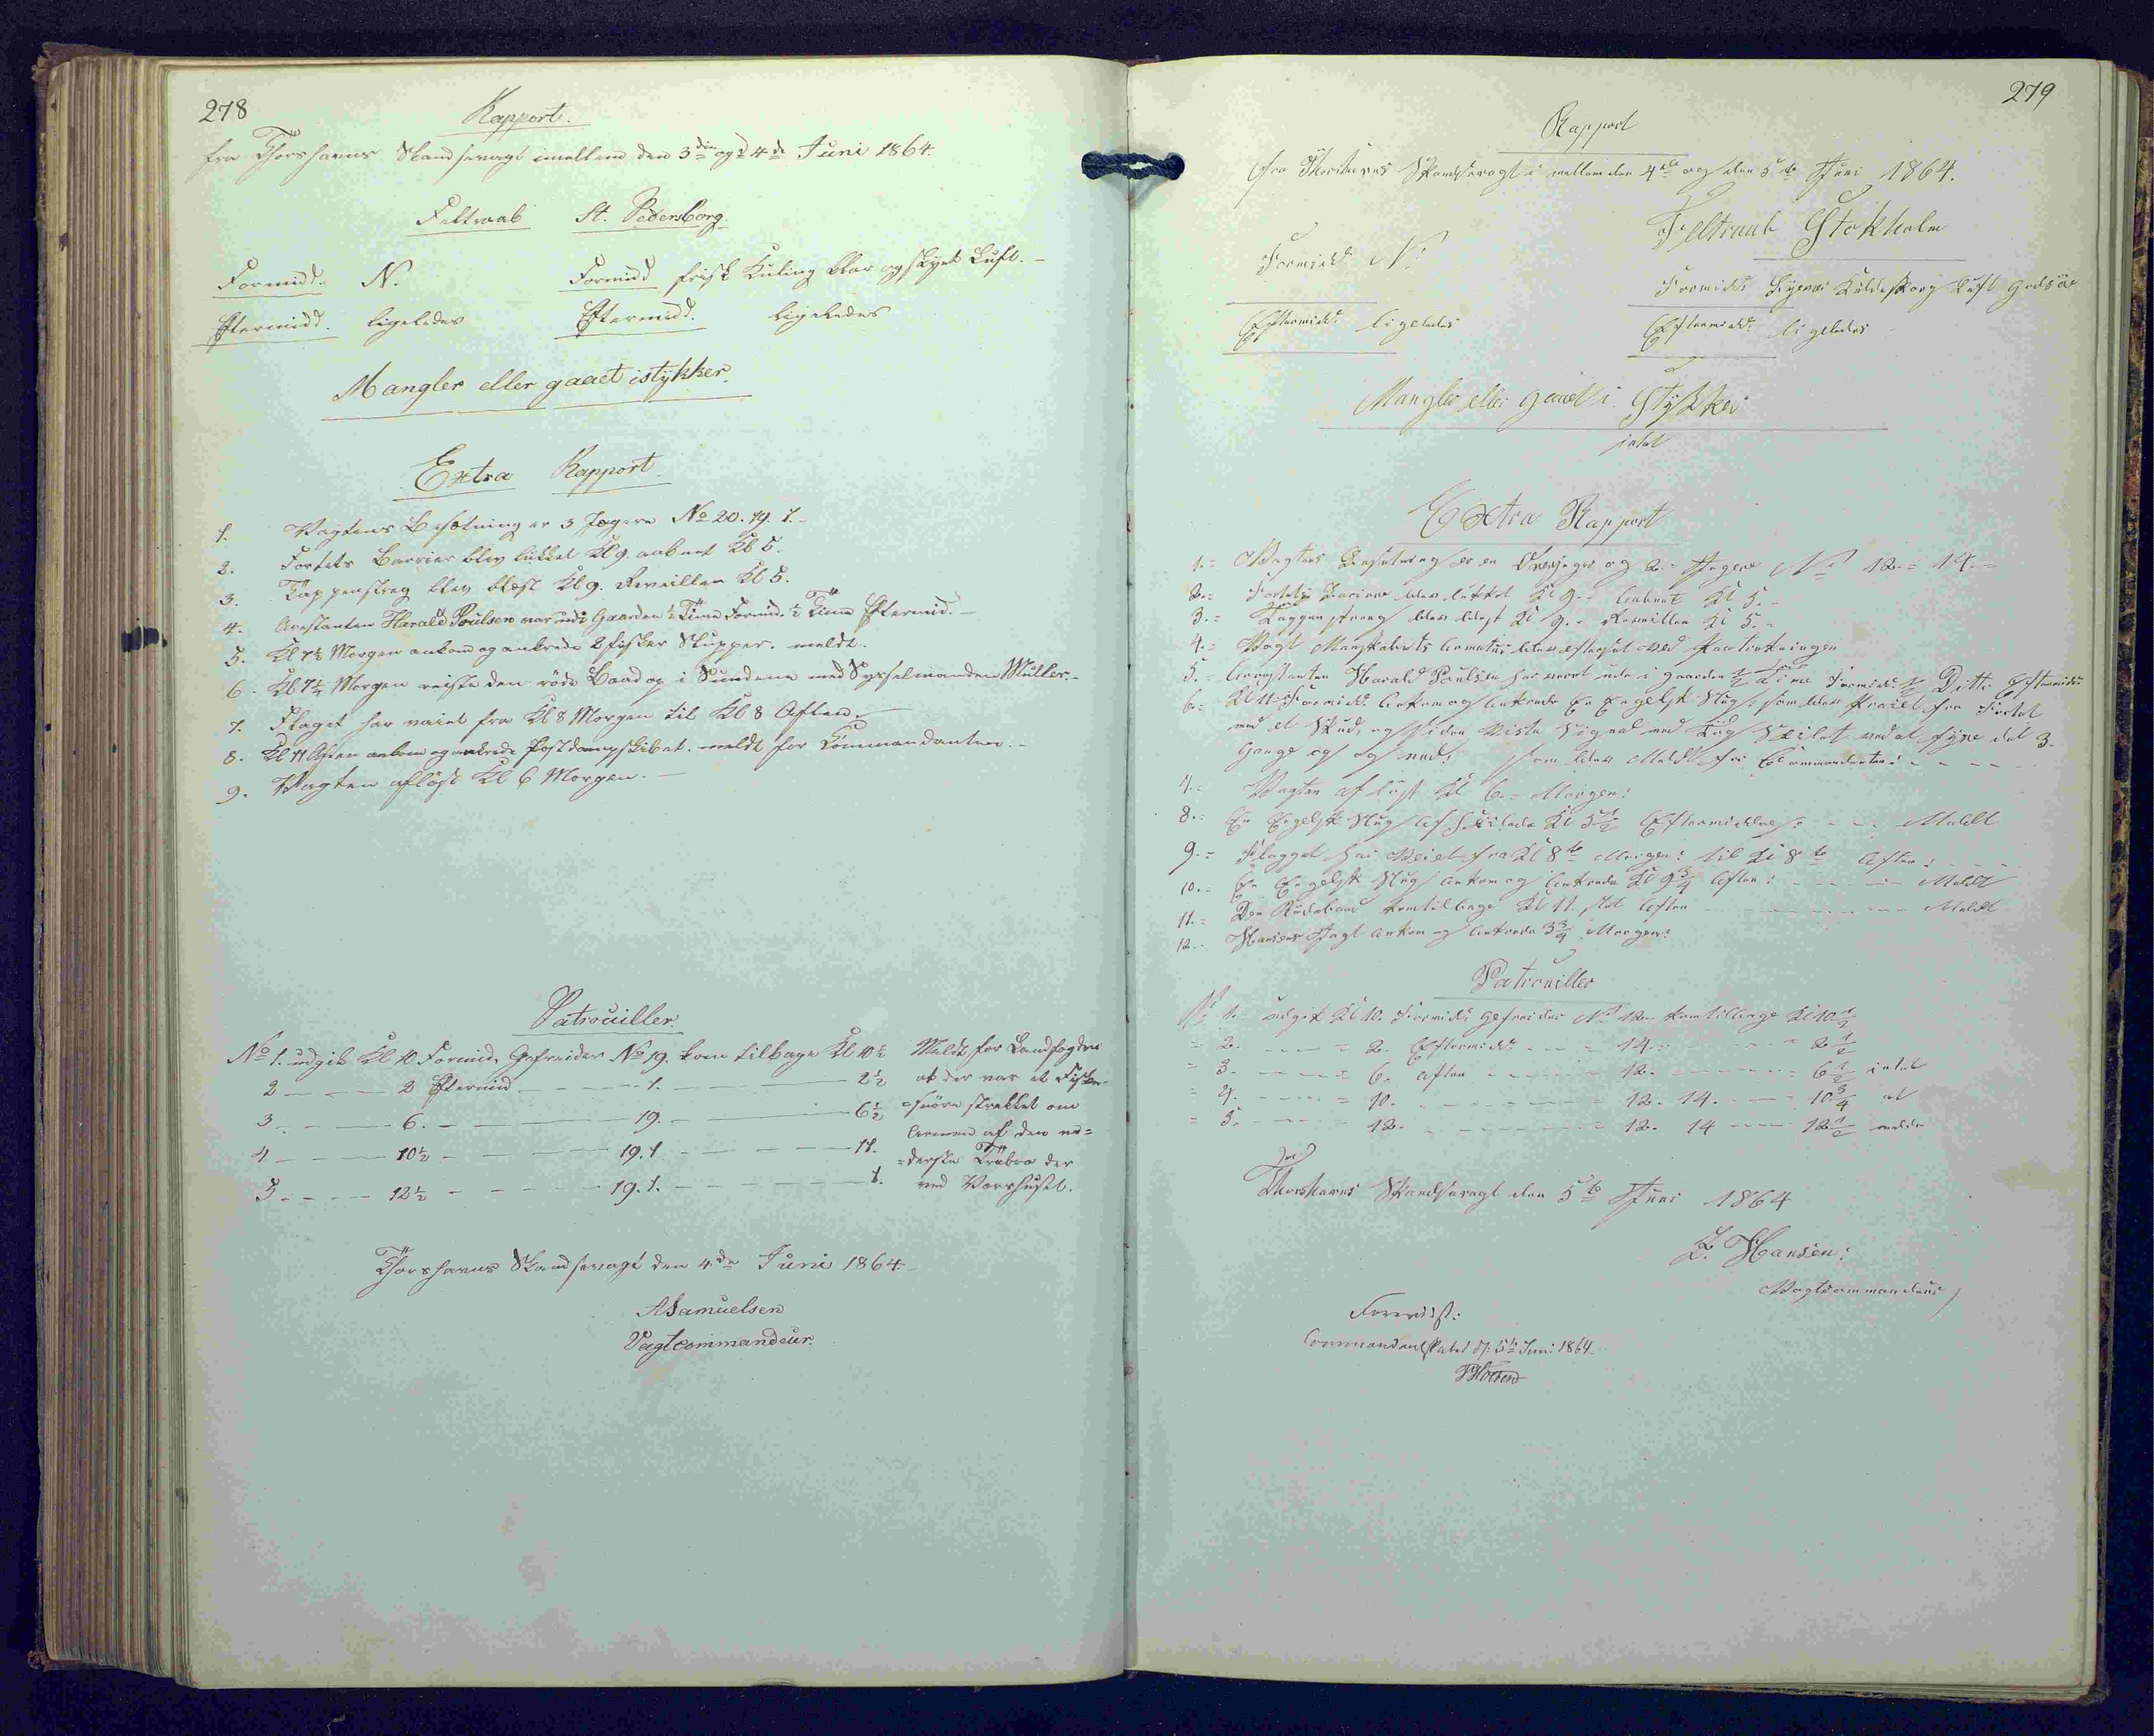 278
Rapport.
fra Thorshavns Skandsevagt imellem den 3die og d 4de Juni 1864.
Feltraab St. Pedersborg.
Formidd. N. Formidd frisk Kuling klar og skyet Luft.
Eftermidd. ligeledes Eftermidd. ligeledes
Mangler eller gaaet istykker.
Extra Rapport.
1. Vagtens Besætning er 3 Jægere No 20. 19. 1.
2. Fortets Barrier blev lukket Kl 9. aabnet Kl 5.
3. Tappenstreg blev blæst Kl 9. Reveillen Kl 5.
4. Arestanten Harald Poulsen var ude i Gaarden ½ Time Formid. ½ Time Eftermid.
5. Kl 7½ Morgen ankom og ankrede 2 fisker Slupper. meldt.
6. Kl 7½ Morgen reiste den røde Baad op i Sundene med Sysselmanden Müller.
7. Flaget har vaiet fra Kl 8 Morgen til Kl 8 Aften.
8. Kl 11 Aften ankom og ankrede Postdampskibet. meldt for Kommandanten.
9. Vagten afløst Kl 6 Morgen.
Patrouiller.
No 1. udgik Kl 10 Formid. Gefreider No 19. kom tilbage Kl 10½ Meldt for Landfogden
2 2 Eftermid 1. 2½ at der var et Fisker-
3. 6. 19. 6½ =snöre strekket om
4 10½ 19. 1 11. Armen af den ne=
5. 12½ 19. 1. 1. =derste Trübro der
ved Vorshuset.
Thorshavns Skandsevagt den 4de Juni 1864.
ASamuelsen
Vagtcommandeur.
279
Rapport
fra Thorshavns Skandsevagt i mellem den 4de og den 5te Juni 1864.
Feltraab Stokholm
Formidd. N.
Formidd. Kuld Luft
Eftermidd. ligeledes Eftermidd. ligeledes
Mangler eller gaaet i Stykker
intet
Extra Rapport
1. Vagtens Besetning er en Overjæger og 2 Jægere No 12. 14.
2. Fortets Bariere blev lukket Kl 9. Aabnet Kl 5.
3. Tappenstreg blev blest Kl 9. Reveillen Kl 5.
4. Vagt Mandskabets Armatur blev efterset ved
5. Arrestanten Harald Poulsen har veret ude i gaarden ½ Time Formidd. ½ Ditto Eftermidd.
6. Kl 11 Formidd. Ankom og Ankrede En Engelsk Slup, som blev Praiet fra Fortet
med et Skud, og siden viste Signal med Flag Skiltet ved at fire det 3
Gange op og ned, som blev Meldt for Commandanten.
7. Vagten afløst Kl 6. Morgen.
8. En Engelsk Slup afseilede Kl 5½ Eftermiddag. Meldt
9. Flagget har Veiet fra Kl 8te Morgen til Kl 8te Aften.
10. En Engelsk Slup Ankom og Ankrede Kl 9¾ Aften. Meldt
11. Den Rødebaad kom tilbage Kl 11. slet Aften Meldt
12. Hansens Jagt Ankom og Ankrede 3¾ Morgen.
Patrouiller
No 1. udgik Kl 10. Formidd. Gefreider No 12. kom tilbage Kl 10½
2. 2. Eftermidd. 14. 2½
3. 6. Aften 12. 6½ intet
4. 10. 12. 14. 10¾ at
5. 12. 12. 14 12½ melde
Thorshavns Skandsevagt den 5te Juni 1864
Z. Hansen.
Vagtcommandeur
Forevist.
Commandantskabet d. 5te Juni 1864.